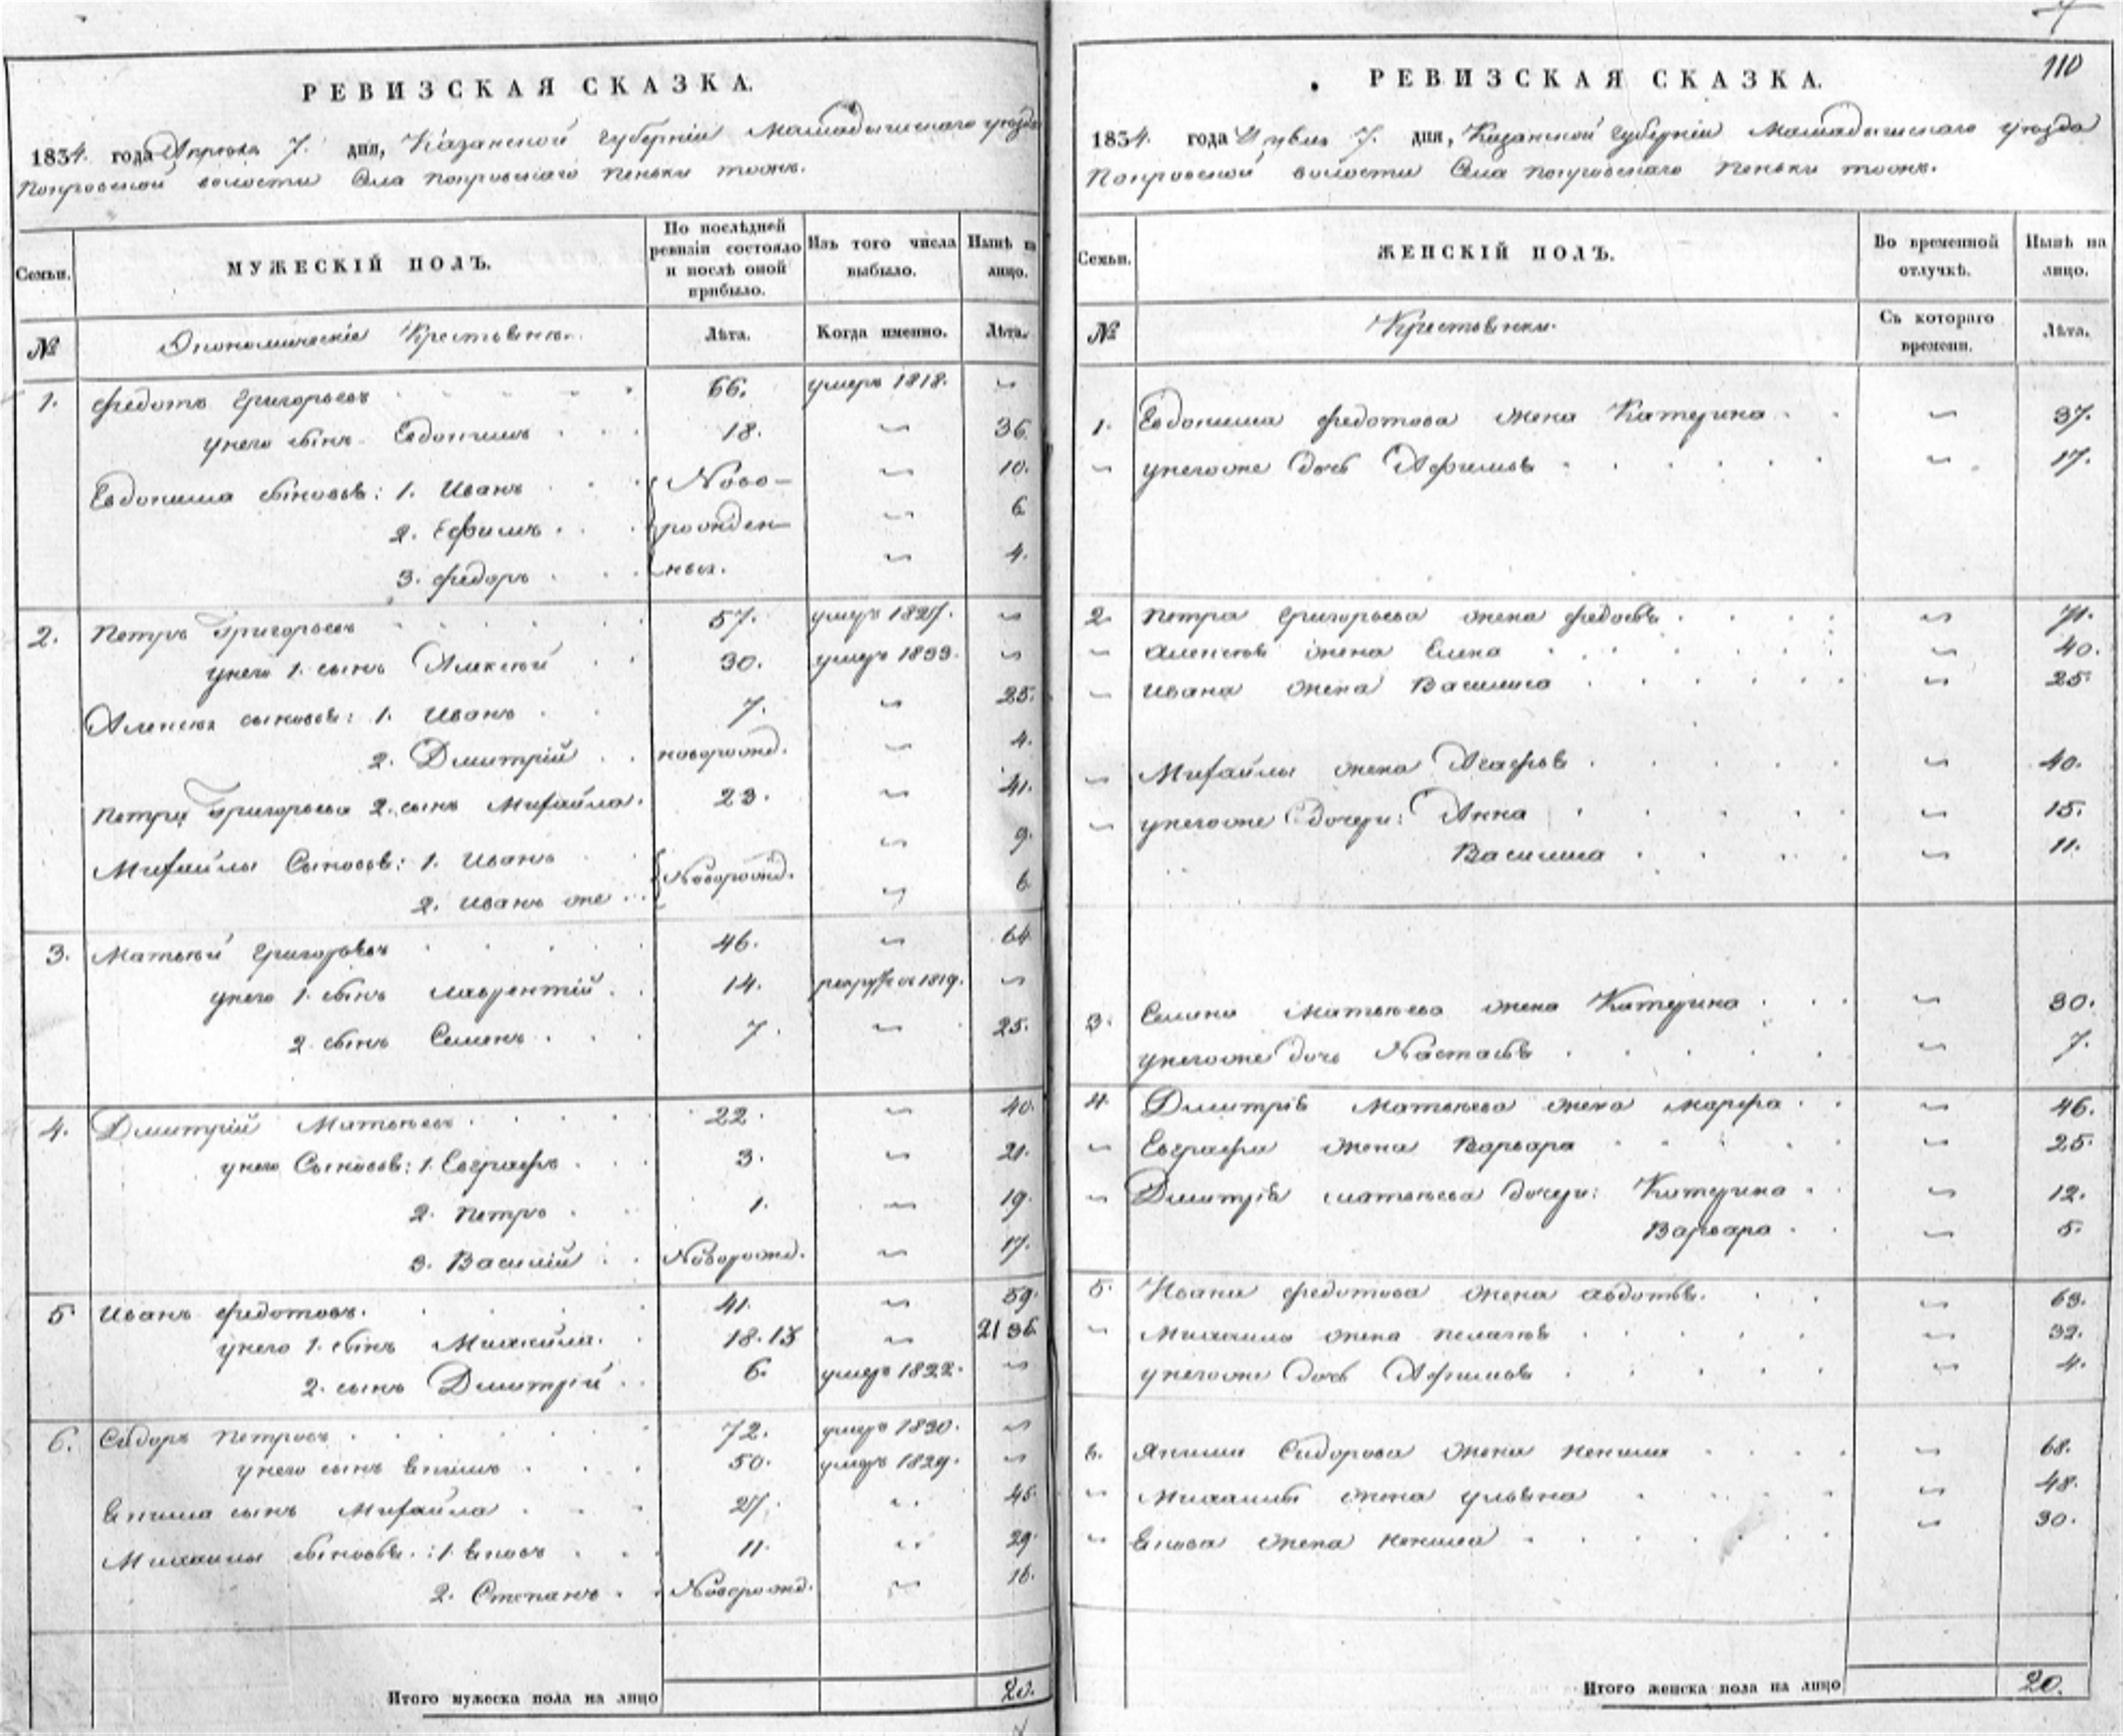 РЕВИЗСКАЯ СКАЗКА.
1834. года Апреля 7. дня, Казанской губерніи Мамадышскаго уѣзда
Покровской волости Села покровскаго Пеньки тожъ.
Семьи.
МУЖЕСКІЙ ПОЛЪ.
По послѣдней ревизіи состояло и послѣ оной прибыло.
Изъ того числа выбыло.
Нынѣ на лицо.
№
Економическіе Крестьяне.
Лѣта.
Когда именно.
Лѣта.
1. Федотъ Григорьевъ 66. умеръ 1818.
у него сынъ Евдокимъ 18. 36
Евдокима сыновья: 1. Иванъ Ново- 10.
2. Ефимъ рожден- 6
3. Федоръ ных. 4.
2. Петръ Григорьевъ 57. умеръ 1827.
у него 1. сынъ Алексѣй 30. умеръ 1833.
Алексѣя сыновья: 1. Иванъ 7. 25.
2. Дмитрій новорожд. 4.
Петра Григорьева 2. сынъ Михайла. 23. 41.
Михайлы Сыновья: 1. Иванъ Новорожд. 9.
2. Иванъ же 6
3. Матвѣй Григорьевъ 46. 64
у него 1. сынъ Лаврентій 14. 1819.
2 сынъ Семенъ 7. 25.
4. Дмитрій Матвѣевъ 22. 40.
у него Сыновья: 1. Евграфъ 3. 21.
2. Петръ 1. 19.
3. Василій Новорожд. 17.
5 Иванъ Федотовъ. 41. 59.
у него 1. сынъ Михайла. 18.13 21 36
2. сынъ Дмитрій 6. умеръ 1822.
6. Сидоръ Петровъ 72. умеръ 1830.
у него сынъ 50. умеръ 1829.
сынъ Михайла 27. 45.
Михайлы сыновья: 1. 11. 29.
2. Степанъ Новорожд. 16.
Итого мужеска пола на лицо 20.
110
РЕВИЗСКАЯ СКАЗКА.
1834. года 7. дня, Казанской губерніи Мамадышскаго уѣзда
Покровской волости Села покровскаго Пеньки тожъ.
Семьи.
ЖЕНСКІЙ ПОЛЪ.
Во временной отлучкѣ.
Нынѣ на лицо.
№
Крестьянки.
Съ котораго времени.
Лѣта.
1. Евдокима Федотова жена Катерина 37.
у него же дочь Афимья 17.
2. Петра Григорьева жена Федосья 71.
Алексѣя жена Елена 40.
Ивана жена Василиса 25.
Михайлы жена Агафья 40.
у него же Дочери: Анна 15.
Василиса 11.
3. Семена Матвѣева жена Катерина 30.
у него же дочь Настасья 7.
4 Дмитрія Матвѣева жена Марфа 46.
Евграфа жена Варвара 25.
Дмитрія Матвѣева дочери: Катерина 12.
Варвара 5.
5. Ивана Федотова жена Авдотья. 63.
Михайлы жена Пелагѣя 32.
у него же Дочь Афимья 4.
6. Сидорова жена 68.
Михайлы жена Ульяна 48.
жена 30.
Итого женска пола на лицо 20.